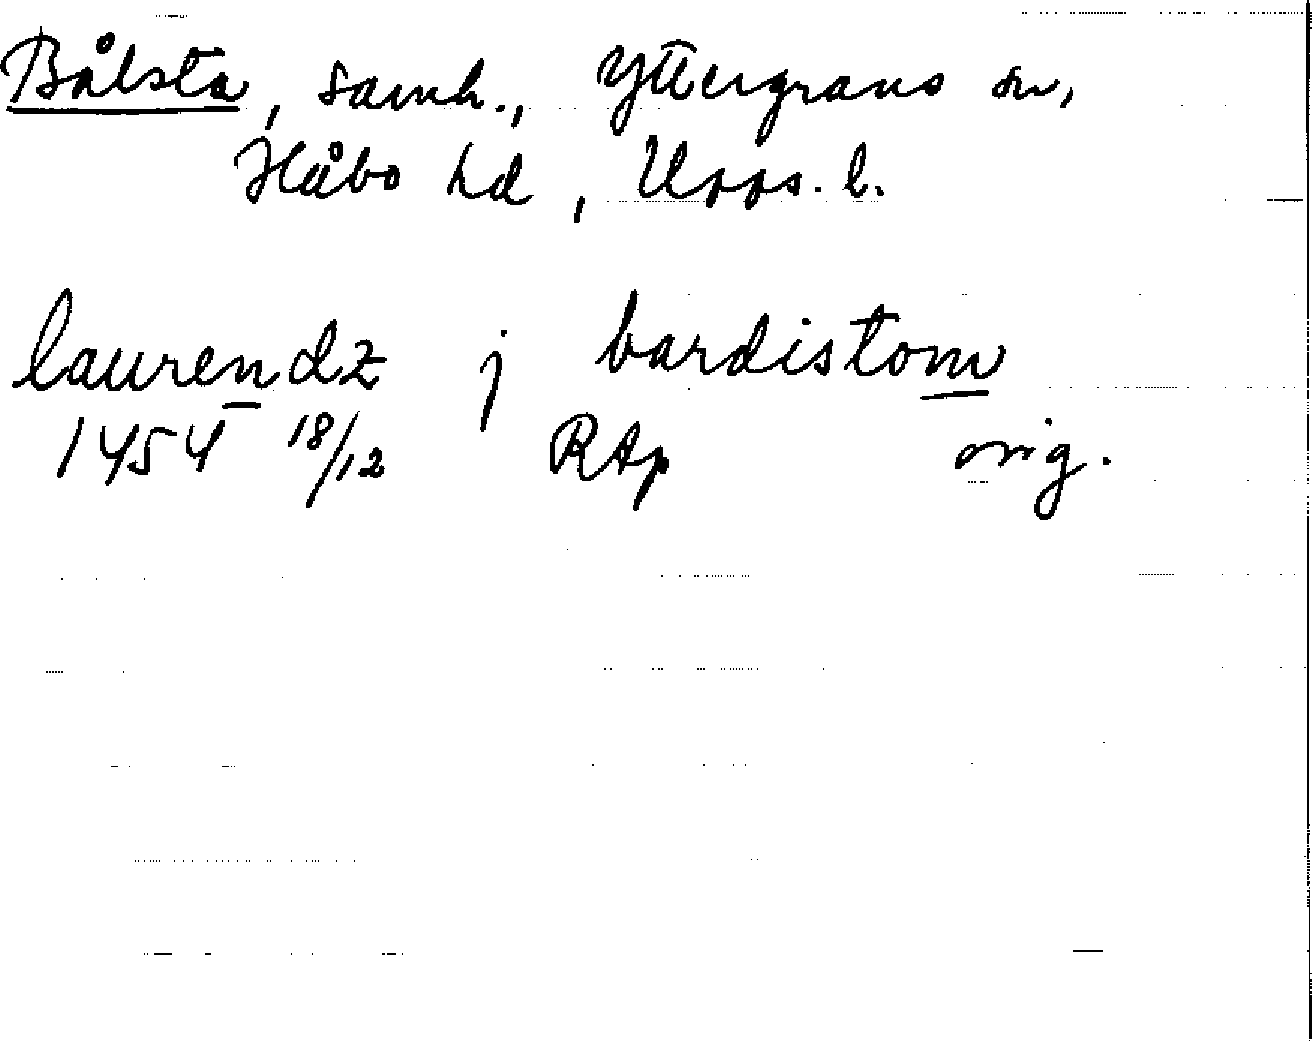 Bålsta, samh., Yttergrans sn,
Håbo hd, Upps. l.
laurendz j bardistom
1454 18/12 RAp orig.